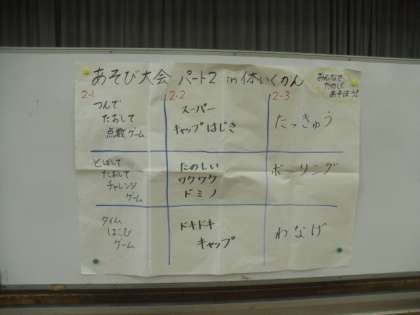 あそび大会 パート2 in 体いくかん
みんなで
たのしく
あそぼう!
2-1
つんで
たおして
点数ゲーム
とばして
たおして
チャレンジ
ゲーム
タイム
はこび
ゲーム
2-2
スーパー
キャップはじき
たのしい
ワクワク
ドミノ
ドキドキ
キャップ
2-3
たっきゅう
ボーリング
わなげ